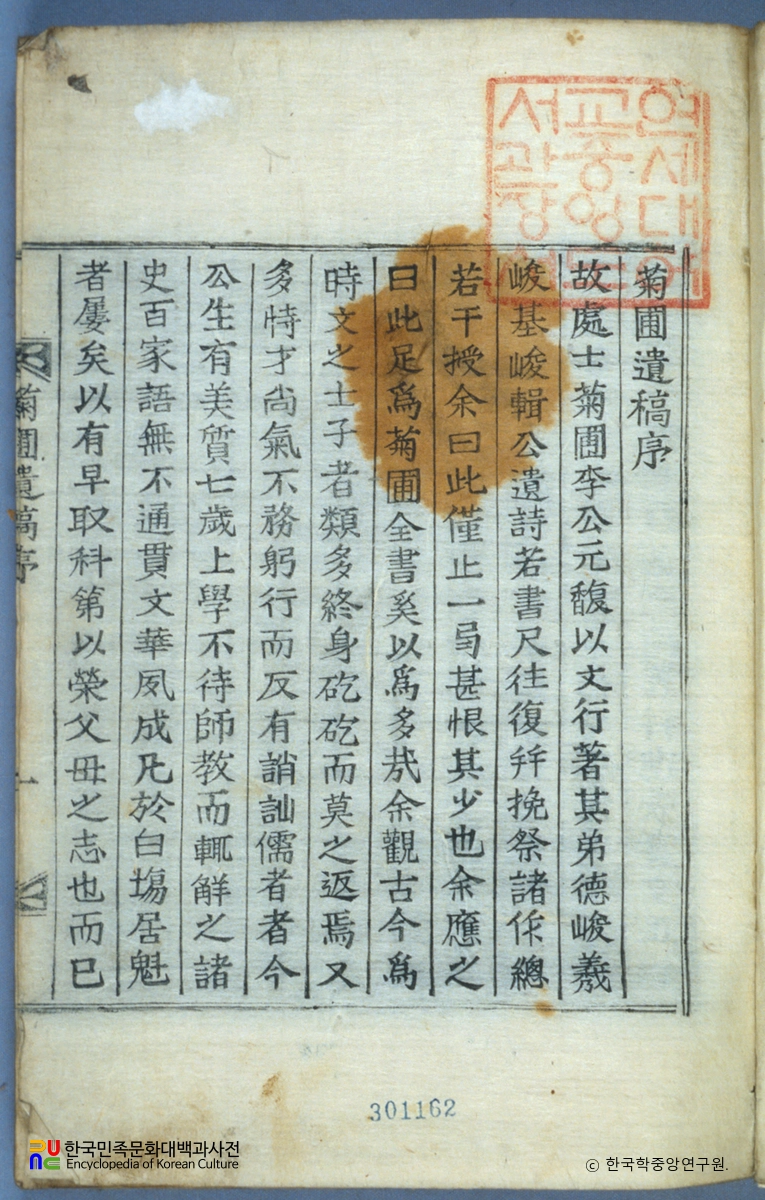 菊圃遺稿序
故處士菊圃李公元馥以文行著其弟德峻羲
峻基峻輯公遺詩若書尺往復幷挽祭諸作總
若干授余曰此僅止一弓甚恨其少也余應之
曰此足爲菊圃全書奚以爲多哉余觀古今爲
時文之士子者類多終身矻矻而莫之返焉又
多恃才尙氣不務躬行而反有誚訕儒者者今
公生有美質七歲上學不待師教而輒解之諸
史百家語無不通貫文華夙成凡於白塲居魁
者屢矣以有早取科第以榮父母之志也而已
菊圃遺稿序
一
연세대학
교중앙도
서관장서
301162
한국민족문화대백과사전
Encyclopedia of Korean Culture
© 한국학중앙연구원.